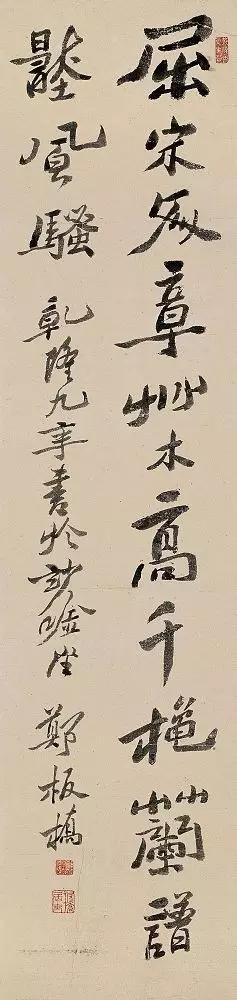 屈宋文章艸木高千穐蘭譜
壓風騷 乾隆九年書於唫座 鄭板橋